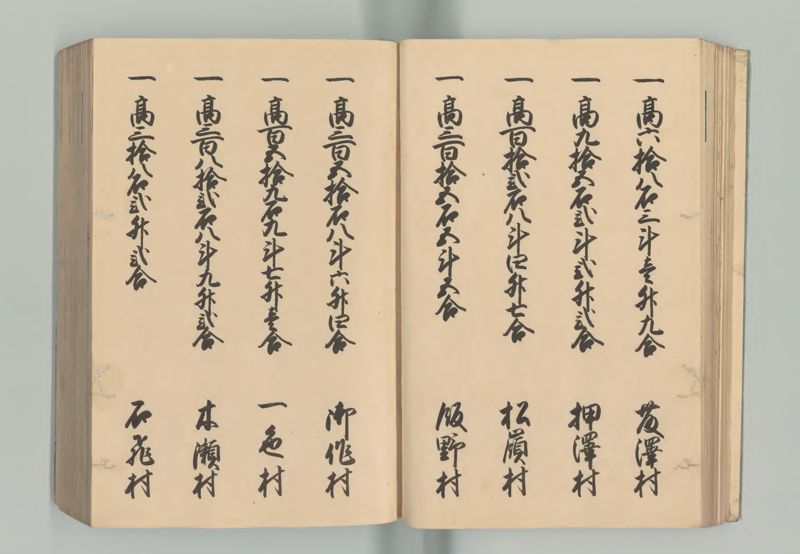 一高六拾八石三斗壱升九合 藤澤村
一高九拾五石弐斗弐升弐合 押澤村
一高百拾弐石八斗四升七合 松嶺村
一高三百拾五石五斗五合 飯野村
一高三百五拾石八斗六升四合 御作村
一高百五拾九石九斗七升壱合 一色村
一高三百八拾弐石八斗九升弐合 木瀬村
一高三拾八石弐升弐合 石飛村